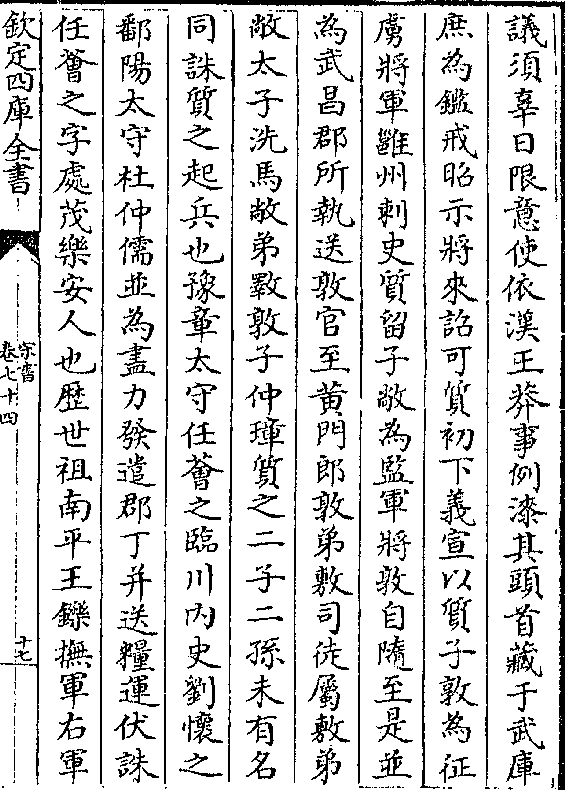 議須辜日限意使依漢王莽事例漆其頭首藏于武庫
庶為鑑戒昭示將來詔可質初下義宣以質子敦為征
虜將軍雝州刺史質留子敞為監軍將敦自隨至是並
為武昌郡所執送敦官至黄門郎敦弟敷司徒屬敷弟
敞太子洗馬敞弟斁敦子仲璋質之二子二孫未有名
同誅質之起兵也豫章太守任薈之臨川内史劉懷之
鄱陽太守杜仲儒並為盡力發遣郡丁并送糧運伏誅
任薈之字處茂樂安人也歴世祖南平王鑠撫軍右軍
欽定四庫全書
宋書
卷七十四
十七